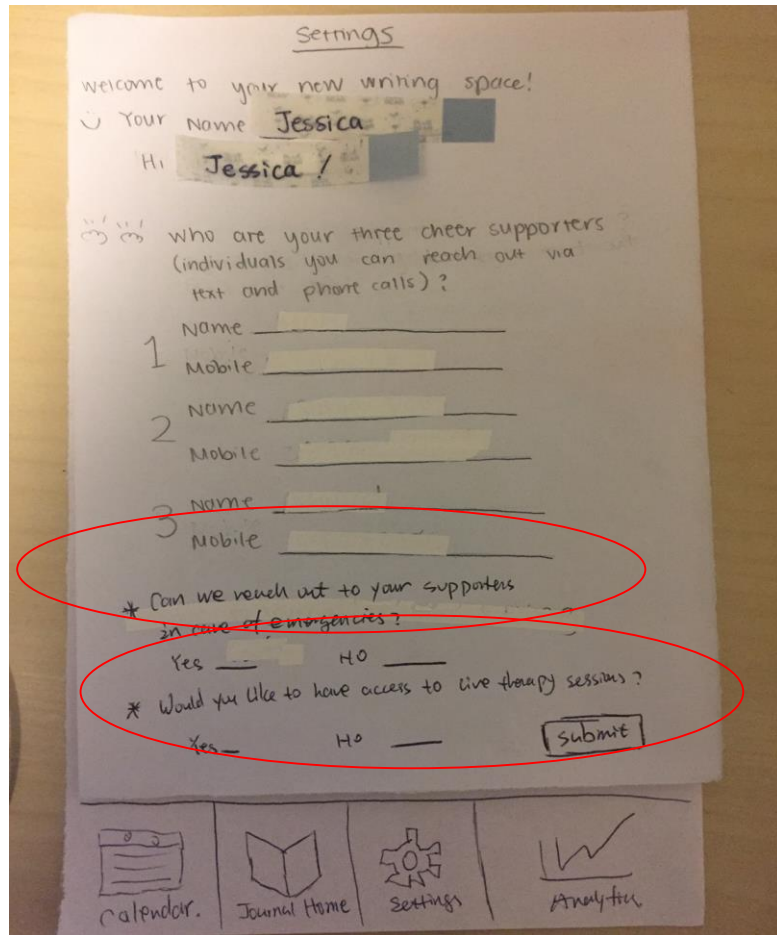 Settings
welcome to your new writing space!
Your Name Jessica
Hi Jessica!
who are your three cheer supporters
(individuals you can reach out via
text and phone calls)?
1 Name
Mobile
2 Name
Mobile
3 Name
Mobile
* Can we reach out to your supporters
in case of emergencies?
Yes NO
* Would you like to have access to live therapy sessions?
Yes NO submit
Calendar. Journal Home Settings Analytics